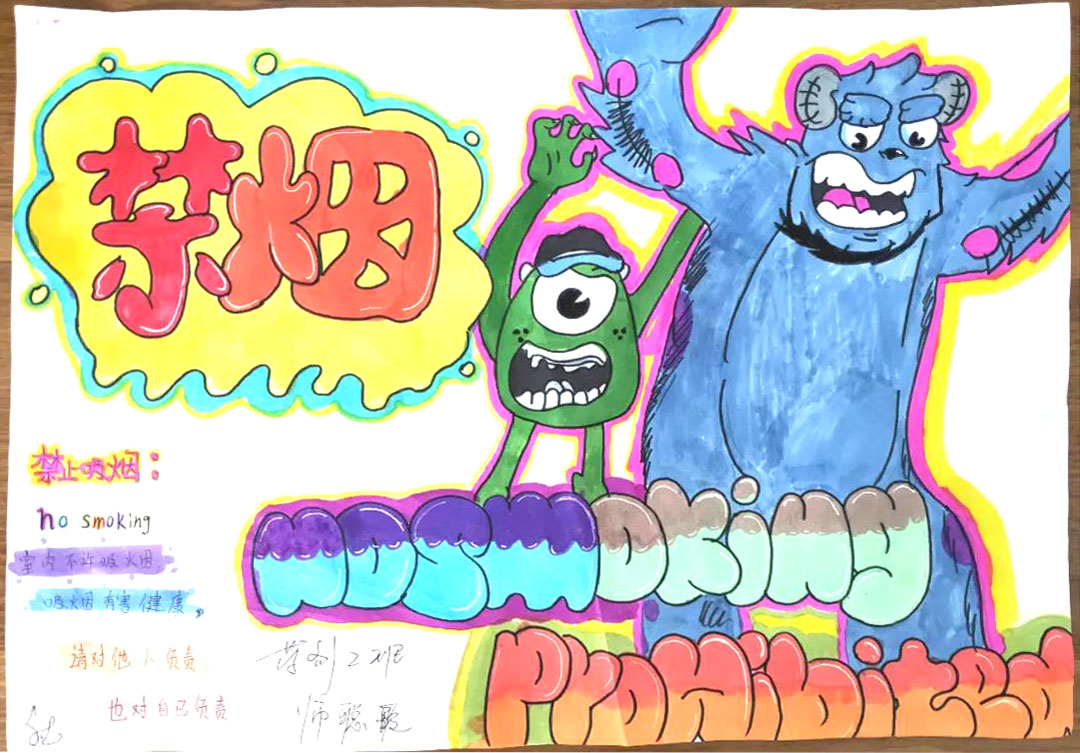 禁烟
禁止吸烟:
no smoking
室内不许吸烟
吸烟有害健康,
请对他人负责
也对自己负责
NOSMOKING
PROHibited
2班
师聪歌